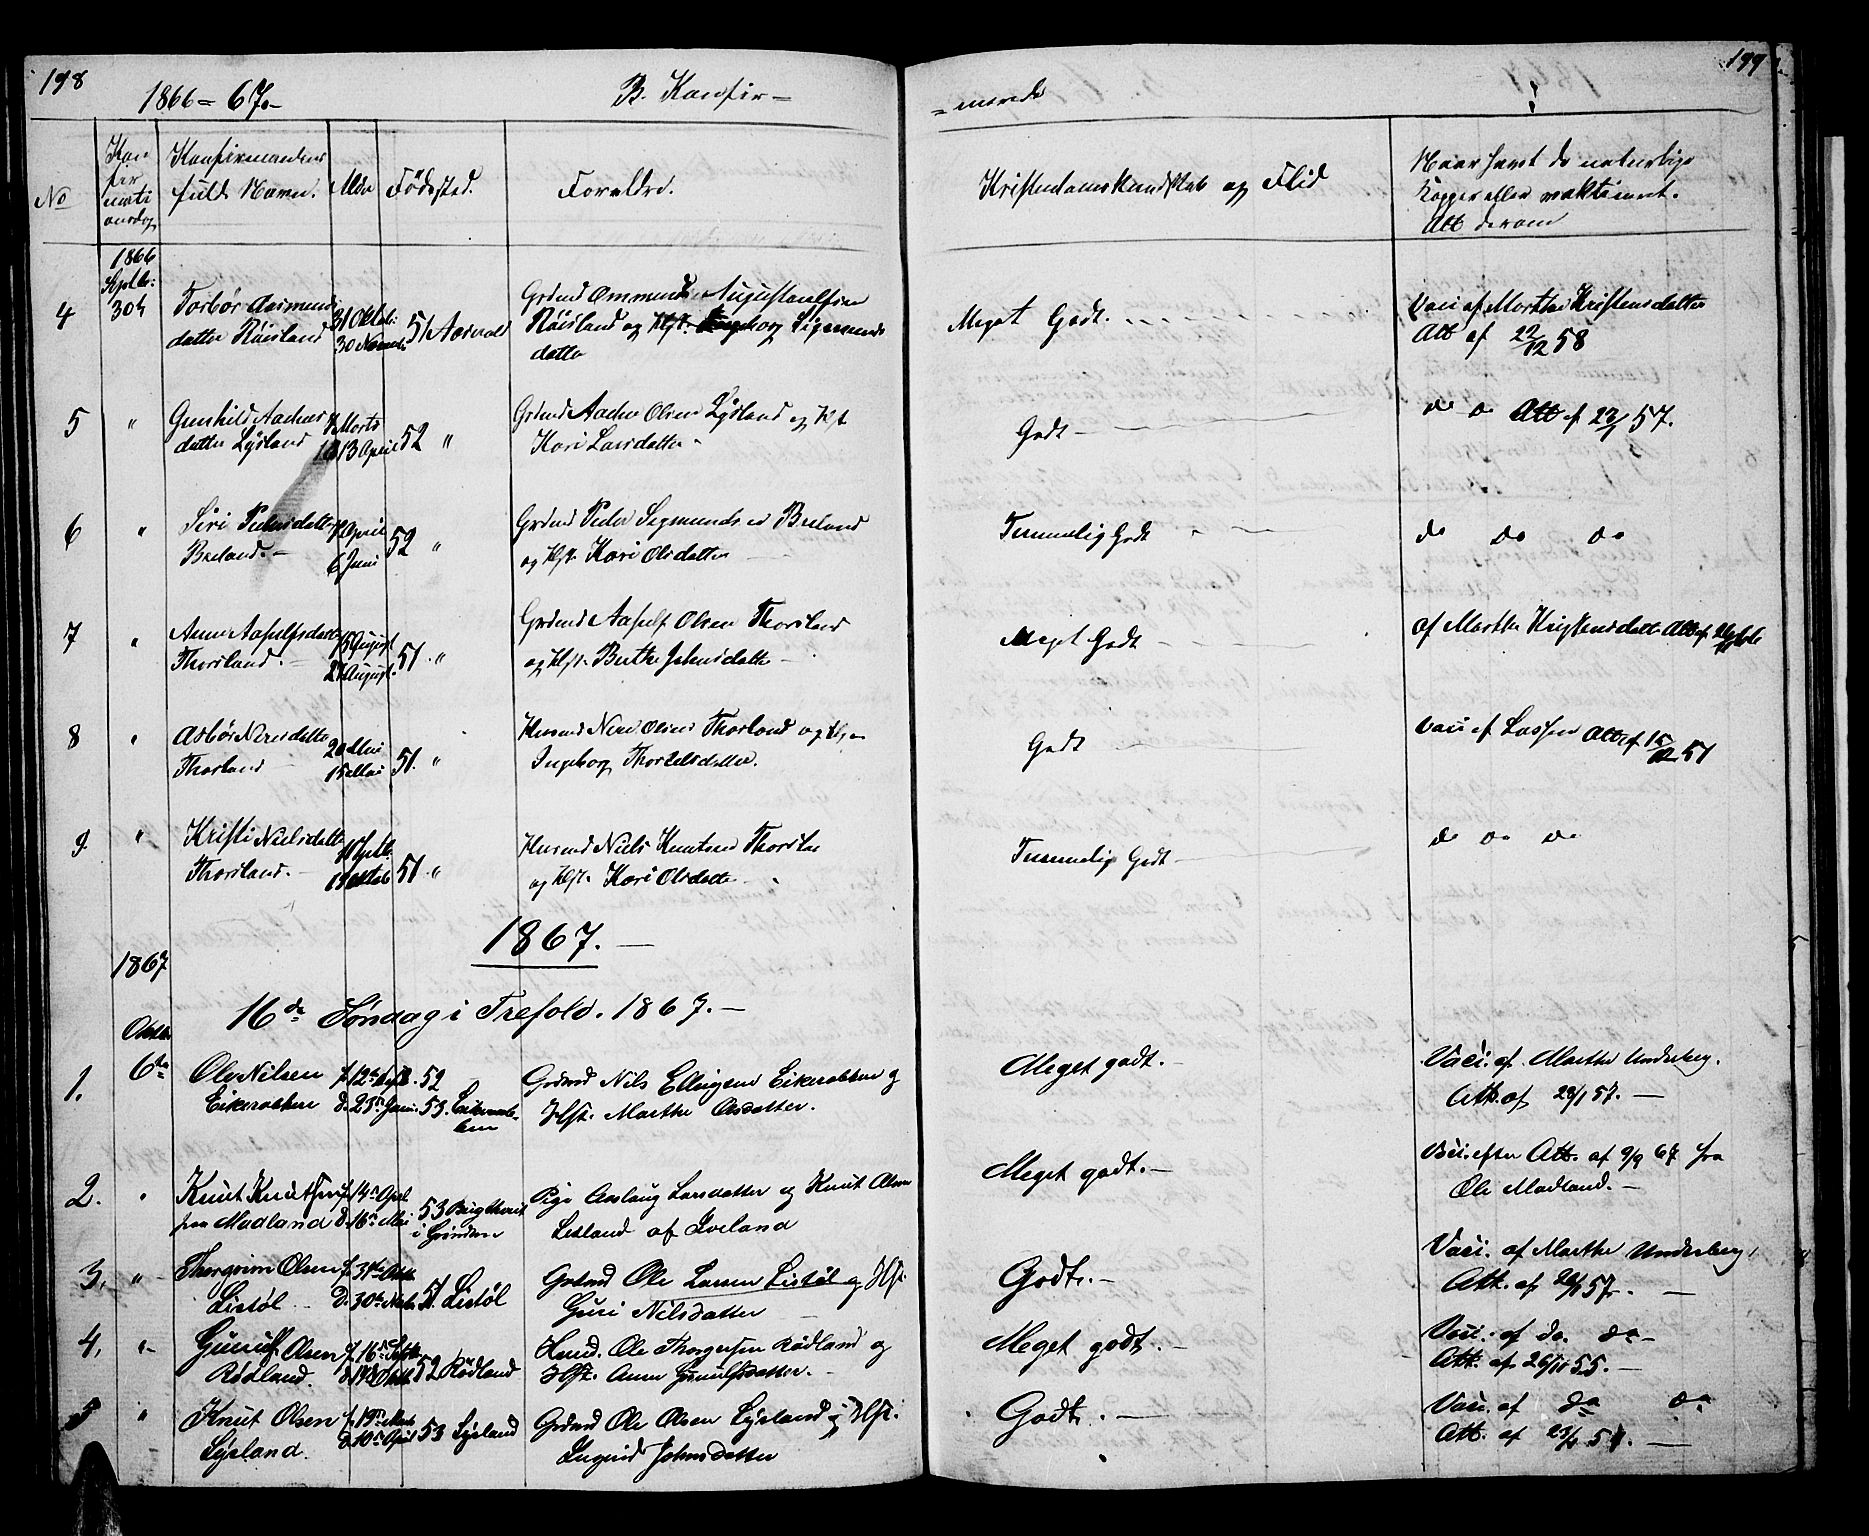 198
1866 = 67.-
B. Konfir =
= merede
199
No
Kon
fir
mati
onsdag
Konfirmandens
fulde Navn.
Alder
Födested.
Forældre.
Kristendomskundskab og Flid
Naar havt de naturlige
Kopper eller vaktineret.
Att derom
1866
Septbr:
4 30te Torbør Aasmunds
datter Röisland 31 Oktob: 30 Novemb. 51 Aaserald
Grdmd Ommund Augustansen
Röisland og Hst. Ingeborg Sigmunds
datter
Meget Godt.
Vaci af Marthe Kristensdatter
Att af 22/12 58
5 " Gunhild Aachas
datter Lÿsland Marts 13 April 52 "
Grdmd Aachas Olsen Lÿsland og Hst
Kari Larsdatter -
Godt -
do do Att af 23/1 57.
6 " Siri Pedersdatter
Breland. - April 6 Juni 52 "
Grdmd Peder Sigmundsen Breland
og Hst. Kari Olsdatter
Temmelig Godt
do do do
7 " Anne Aasulfsdatter
Thorsland. - August 51. "
Grdmd Aasulf Olsen Thorsland
og Hst. Berthe Johnsdatter -
Meget Godt
af Marthe Kristensdatt Att af
8 " Asbör Neresdatter
Thorsland 15 Mai 51. "
Husmd Nere Olsen Thorsland og Hst
Ingeborg Thorkelsdatter.
Godt
Vaci af Lassen Att af 15/12 51
9. " Kristi Nielsdatter
Thorsland. - Septb. Oktob 51. "
Husmd Niels Knutsen Thorsland
og Hst. Kari Olsdatter -
Temmelig Godt -
do do do
1867. -
1867
16de Søndag i Trefold. 1867. -
Oktbr
1. 6te Ole Nilsen
Eikerabben f. 12te Septb. 52
d. 23de Janu. 53.
Grdmd Nils Ellingsen Eikerabben og
Hst. Marthe Aasdatter.
Meget godt. -
Vaci. af Marthe Underberg.
Att. af 28/1 57. -
2. " Knut Knutsen
fra Madland f. 14de April
d. 16de Mai 53
Pige Aaslaug Larsdatter og Knut Olsen
Lisland af Iveland
Meget godt. -
Vaci. efter Att. af 9/9 67 fra
Ole Madland. -
3. " Thorgrim Olsen
Listøl - f. 31te Oktb
d. 30te Novbr 51. Listöl
Grdmd Ole Larsen Listøl og Hst.
Guri Nilsdatter
Godt. -
Vaci. af Marthe Underberg,
Att. af 28/1 57. -
4. " Gunulf Olsen
Rødland. f. 16de Septbr 52 Rødland
Husmd. Ole Thorgersen Rødland og
Hst. Anne Gunulfsdatter. -
Meget godt. -
Vaci. af do. do -
Att. af 26/11 55. -
5 " Knut Olsen
Lÿsland. f. 19de Marts
d. 10de April 53 Lÿsland
Grdmd Ole Olsen Lÿsland og Hst.
Ingerid Johnsdatter
Godt. -
Vaci. af do do
Att. af 23/1 57. -